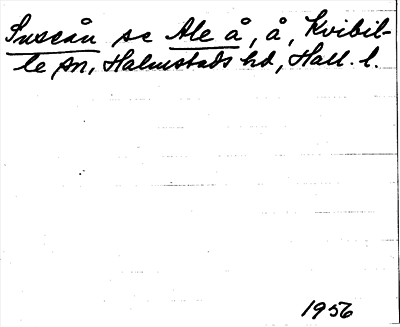 Suseån se Ale å, å, Kvibil-
le sn, Halmstads hd, Hall. l.
1956